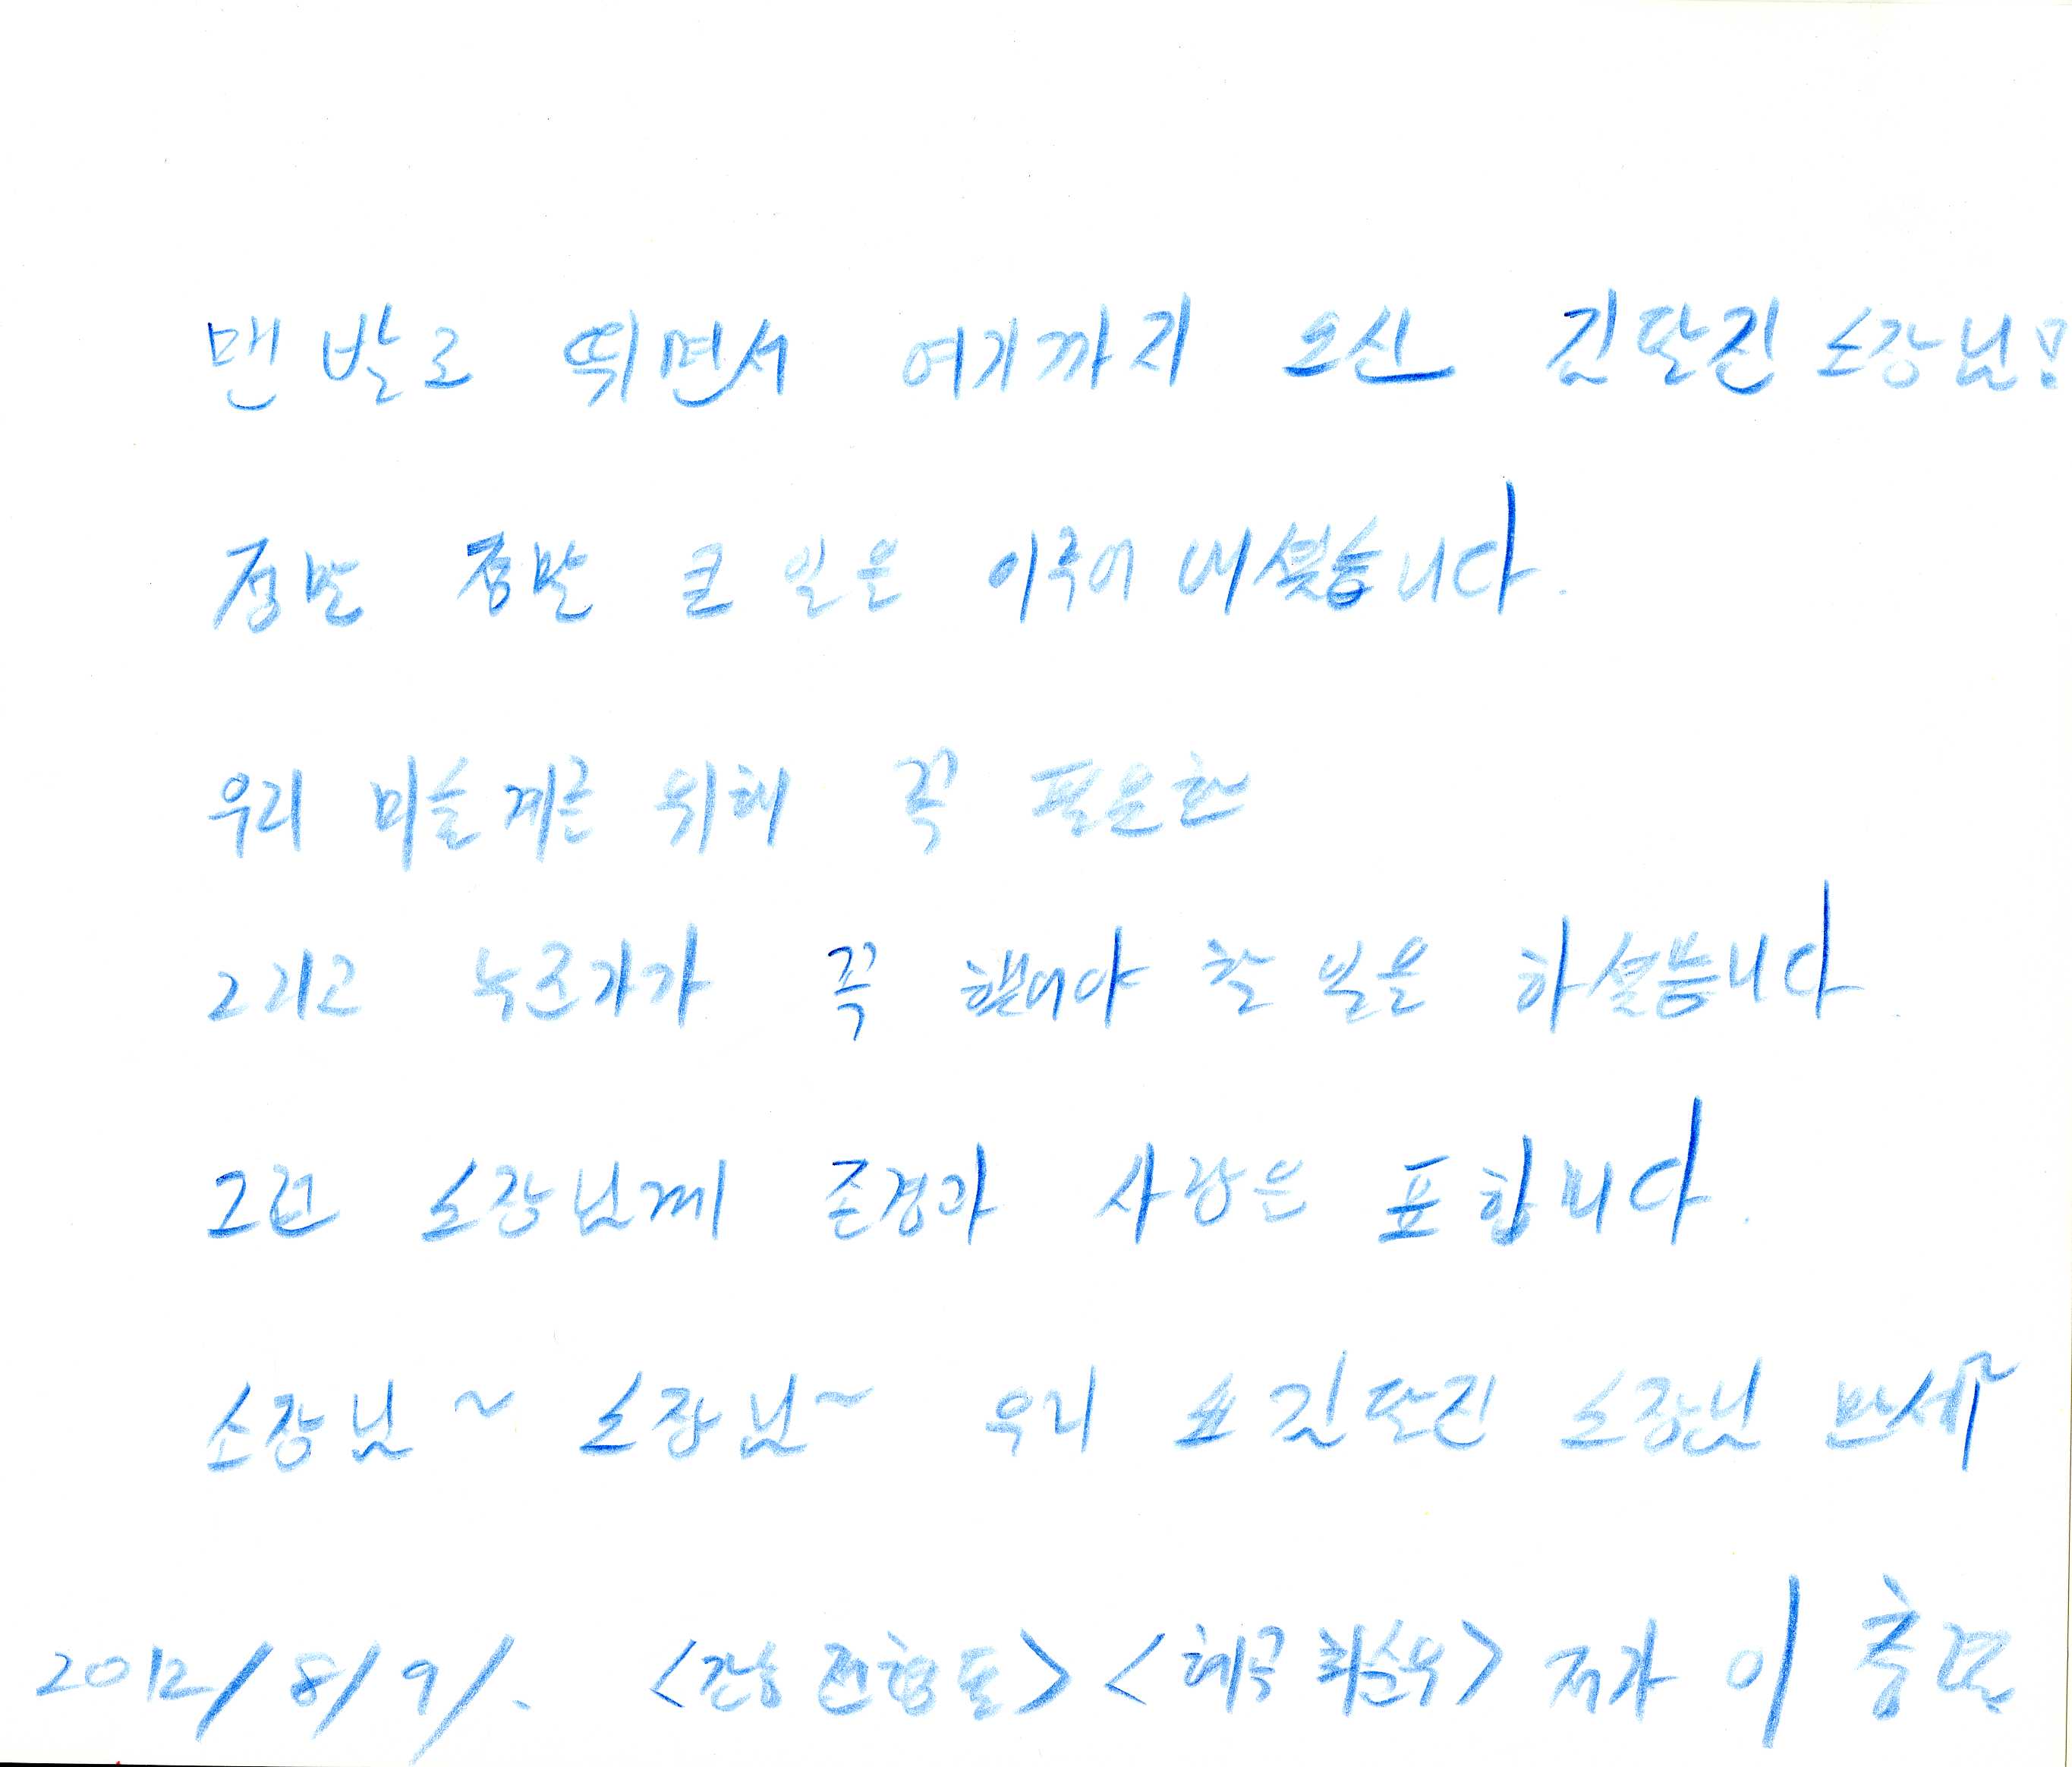 맨발로 뛰면서 여기까지 오신 김달진 소장님!
정말 정말 큰 일을 이루어 내셨습니다.
우리 미술계를 위해 꼭 필요한
그리고 누군가가 꼭 했어야 할 일을 하셨습니다.
그런 소장님께 존경과 사랑을 표합니다.
소장님~ 소장님~ 우리 김달진 소장님 만세
2012/8/9/. <간송 전형필> <혜곡 최순우> 저자 이충렬